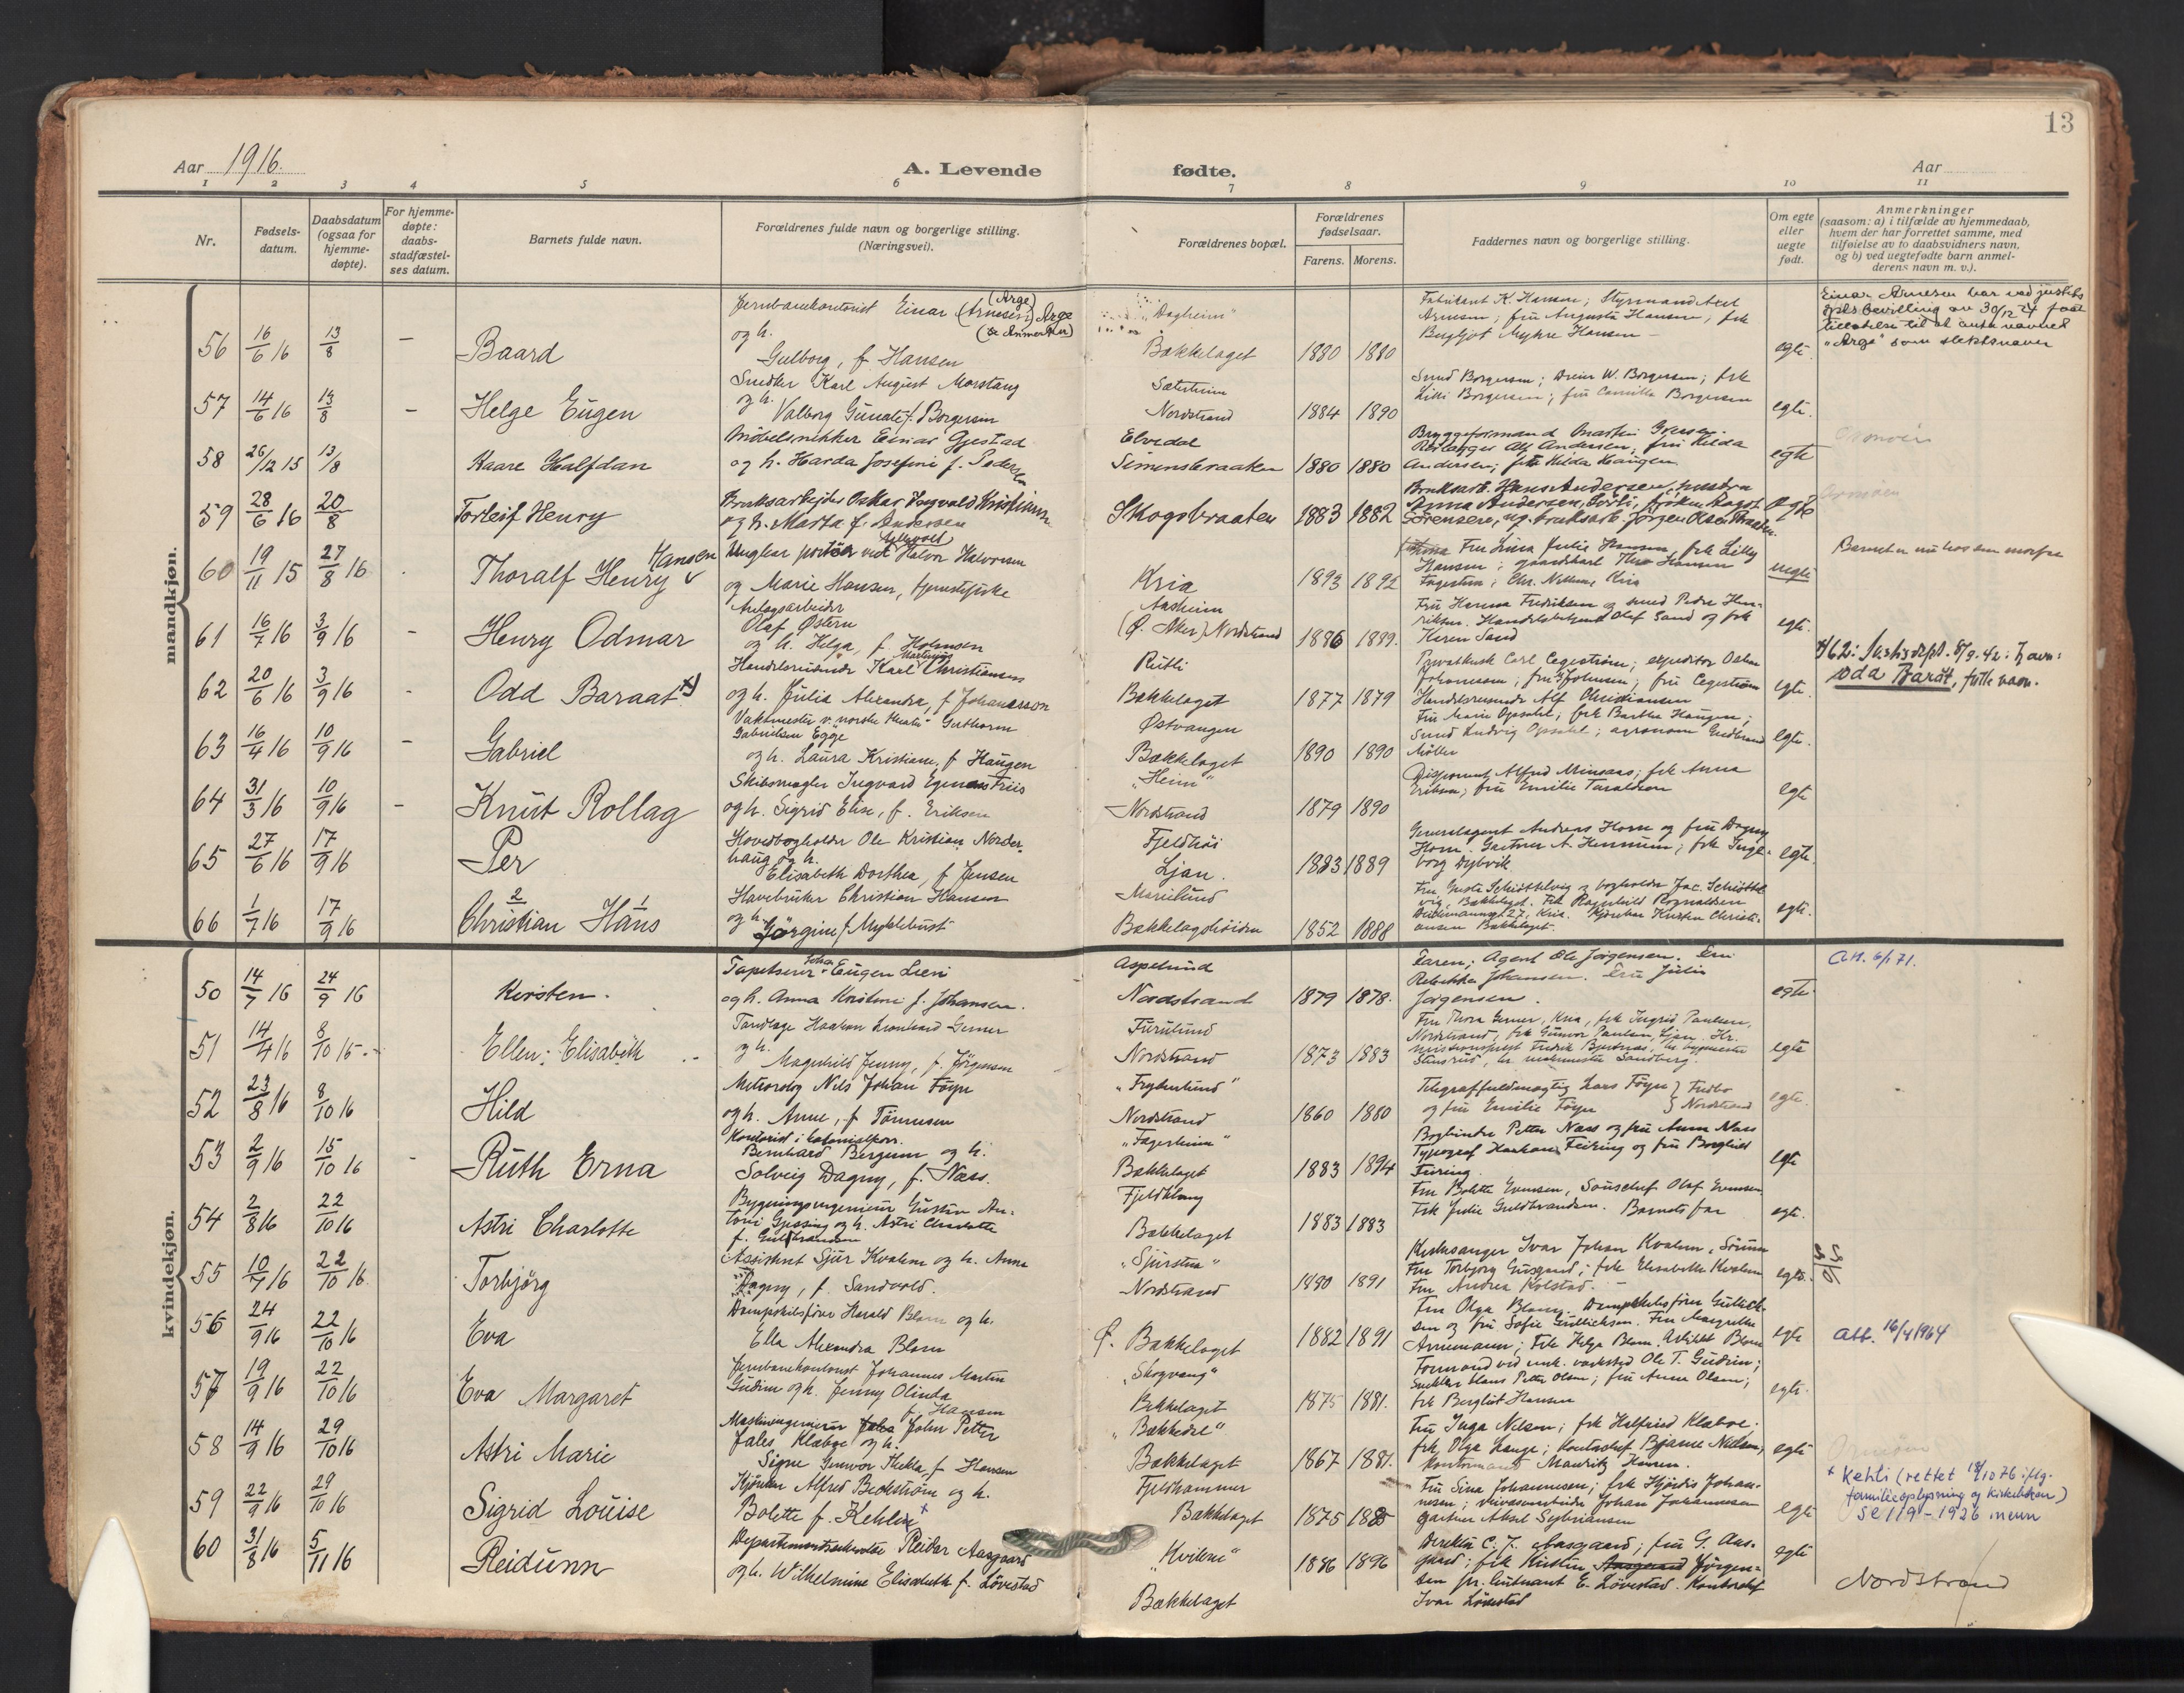 13
Aar 1916.
A. Levende fødte.
Aar
1 2 3 4 5 6 7 8 9 10 11
Nr.
Fødsels-
datum.
Daabsdatum
(ogsaa for
hjemme-
døpte).
For hjemme-
døpte:
daabs-
stadfæstel-
ses datum.
Barnets fulde navn.
Forældrenes fulde navn og borgerlige stilling.
(Næringsvei).
Forældrenes bopæl.
Forældrenes
fødselsaar.
Farens. Morens.
Faddernes navn og borgerlige stilling.
Om egte
eller
uegte
født.
Anmerkninger
(saasom: a) i tilfælde av hjemmedaab,
hvem der har forrettet samme, med
tilføielse av to daabsvidners navn,
og b) ved uegtefødte barn anmel-
derens navn m. v.).
mandkjøn.
56 16/6 16 13/8 — Baard
Jernbanekontorist Einar (Arnesen) Arge
(Arge)
(se Anmerkn.)
og h.
Gulborg, f. Hansen
"Dagheim"
Bækkelaget 1880 1880
Fabrikant K. Hansen; Styrmand Axel
Arnesen; fru Augusta Hansen; frk
Bergljot Myhre Hansen
egte.
Einar Arnesen har ved justits
dpts bevilling av 30/12 24 faat
tilladelse til at anta navnet
"Arge" som slektsnavn
57 14/6 16 13/8 — Helge Eugen
Snedker Karl August Morstang
og h.
Valborg f. Borgersen
Sæterheim
Nordstrand 1884 1890
Smed Borgersen; Dreier W. Borgersen; frk
Lilli Borgersen; fru Camilla Borgersen
egte.
58 26/12 15 13/8 Kaare Halfdan
Møbelsnekker Einar Gjestad
og h. Harda Josefine f. Pedersen
Elvedal
Simensbraaten 1880 1880
Bryggeformand Martin
Andersen, fru Hilda
Andersen; frk Hilda Haugen
egte
59 28/6 16 20/8 Torleif Henry
Bruksarbejder Oskar Ingvald Kristiansen
og h. Marta f. Andersen
Skogsbraaten 1883 1882
Bruksarb. Hans Andersen, hustru
Anna Andersen, frøken Aagot
Sørensen, ug. bruksarb. Jørgen Olsen
egte
60 19/11 15 27/8 16 Thoralf Henry Hansen
Ungkar portør ved Halvor Halvorsen
og Marie Hansen, tjenestepike
Kria 1893 1892
Fru Lina Julie Hansen, frk Lilly
Hansen; gaardskarl Thor Hansen
Fagerstrøm; Chr. Nilsen, Kria
uegte
Barnet er nu hos sin morfar
61 16/7 16 3/9 16 - Henry Odmar
Anlægsarbeider
Olaf Østern
og h. Helga, f. Holmsen
Aasheim
(Ø. Aker) Nordstrand 1886 1889.
Fru Hanna Fredriksen og smed Peder Hen-
riksen. Handelsbetjent Olaf Sand og frk
Karen Sand
egte.
62 20/6 16 3/9 16 - Odd Baraat x)
Handelsreisende Karl Martinius Christiansen
og h. Julia Alexandra, f. Johansson
Rütli
Bækkelaget 1877 1879
Privatkusk Carl Cegestrøm; expeditør Oskar
Johansson; fru Johnsen; fru Cegestrøm
Handelsreisende Alf Christiansen
egte.
x) 62: Justisdept. 8/9. 42: navn:
Odd Barat, fulle navn.
63 16/4 16 10/9 16 - Gabriel
Vaktmester v. norske Guthorm
Gabrielsen Egge
og h. Laura Kristiane, f. Haugen
Østvangen
Bækkelaget 1890 1890
Fru Marie Opsahl; frk Berthe Haugen;
Smed Ludvig Opsahl; agronom Gudbrand
Møller
egte.
64 31/3 16 10/9 16 - Knut Rollag
Skibsmægler Ingvard Egenæs Friis
og h. Sigrid Elise, f. Eriksen
"Heim"
Nordstrand 1879 1890
Disponent Alfred Minsaas; frk Anna
Eriksen; fru Emilie Taraldsen
egte
65 27/6 16 17/9 16 Per
Hovedbogholder Ole Kristian Norder-
haug og h.
Elisabeth Dorthea, f. Jensen
Fjeldhøi
Ljan. 1883 1889
Generalagent Andreas Horn og fru Dagny
Horn. Gartner A. Hennum; frk Inge-
borg Dybvik
egte.
66 1/7 16 17/9 16 Christian Hans
2 1
Havebruker Christian Hansen
og h.
Jørgine f. Myklebust
Mærilund
Bækkelagshøiden 1852 1888
Fru Schiøttelvig og bogholder Jac. Schiøttel
vig, Bækkelaget. Frk Ragnhild Rognaldsen
27, Kria. Kjøbmand Kristen Christi-
ansen Bækkelaget.
egte.
kvindekjøn.
50 14/7 16 24/9 16 Kirsten.
Tapetserer Johan Eugen Lieni
og h. Anna Kristine f. Johansen.
Aspelund
Nordstrand 1879 1878.
Faren; Agent Ole Jørgensen. Fru
Rebekka Johansen. Fru Julie
Jørgensen.
egte.
Att. 6/1 71.
51 14/4 16 8/10 16 - Ellen; Elisabeth
Tandlæge Haakon Leonhard Gerner
og h.
Magnhild Jenny, f. Jörgensen
Furulund
Nordstrand 1873 1883
Fru Thora Gerner, Kria, frk Ingrid Paulsen,
Nordstrand, frk Gunvor Paulsen, Ljan. Hr.
Fredrik Bjertnæs, hr bygmester
Stensrud, hr Sandberg.
egte
52 23/8 16 8/10 16 Hild
Meteorolog Nils Johan Føyn
og h. Anne, f. Tønnesen
"Fryberlund"
Nordstrand 1860 1880
Telegraffuldmægtig Lars Føyn } Fredbo
og fru Emilie Føyn } Nordstrand
egte.
53 2/9 16 15/10 16 - Ruth Erna
Kontorist i kolonialforr.
Bernhard Bergum og h.
Solveig Dagny, f. Næss.
"Fagerheim"
Bækkelaget 1883 1894
Bogbinder Petter Næss og fru Anna Næss
Typograf Haakon Feiring og fru Borghild
Feiring.
egte
54 2/8 16 22/10 16 Astri Charlotte
Bygningsingeniør Gustav An-
toni Gjessing og h. Astri Charlotte
f. Guldbrandsen
Fjeldklang
Bækkelaget 1883 1883
Fru Bolette Evensen, Souschef Olaf Evensen
Frk Julie Guldbrandsen. Barnets far
egte.
55 10/7 16 22/10 16 Torbjörg
Assistent Sjur Kvalem og h. Anna
Dagny, f. Sandvold.
"Sjurstun"
Nordstrand 1880 1891
Kirkesanger Ivar Johan Kvalem, Sørum
Fru Torbjørg Gusgaard; frk Elisabeth Kvalem
Fru Andrea Kolstad.
egte.
56 24/9 16 22/10 16 Eva
Dampskibsfører Harald Blom og h.
Ella Alexandra Blom
Ø. Bækkelaget 1882 1891
Fru Olga Blom. Dampskibsfører Gullick-
sen og fru Sofie Gullicksen. Fru Margrethe
Arnemann; Frk Helga Blom. Arkitekt Blom
egte
att. 16/4 1964
57 19/9 16 22/10 16 Eva Margaret
Jernbanekontorist Johannes Martin
Gudim og h. Jenny Olinda
f. Hansen
"Skogvang"
Bækkelaget 1875 1881.
Formand ved mek. verksted Ole T. Gudim;
Snekker Hans Petter Olsen; fru Anna Olsen;
frk Bergliot Hansen
egte.
58 14/9 16 29/10 16 Astri Marie
Maskiningeniør John Petter
Jales Klæboe og h.
Signe Gunvor Thekla, f. Hansen
"Bækkedal"
Bækkelaget 1867 1881.
Fru Inga Nilsen; frk Halfried Klæboe.
frk Olga Lange; Kontorchef Bjarne Nielsen,
Kontormand Mauritz Hansen.
egte
59 22/9 16 29/10 16 Sigrid Louise
Kjøbmand Alfred Beckstrøm og h.
Bolette f. Kehler x
Fjeldhammer
Bækkelaget 1875 1885
Fru Sina Johannesen; frk Hjørdis Johan-
nesen; Johan Johannesen
gartner Aksel Sybriansen
egte
x Kehli (rettet 18/10 76 iflg.
familieoplysning og kirkeboken)
Se 119 - 1926 menn
60 31/8 16 5/11 16 Reidunn
Departementssekretær Reidar Aasgaard
og h. Wilhelmine Elisabeth f. Lövestad
"Kvilen"
Bækkelaget 1886 1896
Direktør C. J. Aasgaard; fru G. Aas-
gaard; frk Kirstin Aasgaard Jørgen-
sen pr. løitnant E. Lövestad. Kontorchef
Ivar Lövestad
egte
Nordstrand